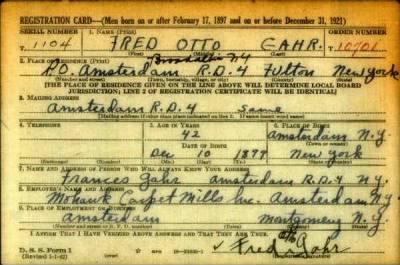 REGISTRATION CARD—(Men born on or after February 17, 1897 and on or before December 31, 1921)
SERIAL NUMBER 1. NAME (Print) ORDER NUMBER
T 1104 FRED OTTO GAHR. T 10701
(First) (Middle) (Last)
2. PLACE OF RESIDENCE (Print) N.Y.
Amsterdam R.D.4 Fulton New York
(Number and street) (Town, township, village, or city) (County) (State)
[THE PLACE OF RESIDENCE GIVEN ON THE LINE ABOVE WILL DETERMINE LOCAL BOARD
JURISDICTION; LINE 2 OF REGISTRATION CERTIFICATE WILL BE IDENTICAL]
3. MAILING ADDRESS
Amsterdam R.D.4 Same
[Mailing address if other than place indicated on line 2. If same insert word same]
4. TELEPHONE 5. AGE IN YEARS 6. PLACE OF BIRTH
42 Amsterdam N.Y.
DATE OF BIRTH (Town or county)
Dec 10 1899 New York
(Exchange) (Number) (Mo.) (Day) (Yr.) (State or country)
7. NAME AND ADDRESS OF PERSON WHO WILL ALWAYS KNOW YOUR ADDRESS
Frances Gahr Amsterdam R.D.4 N.Y.
8. EMPLOYER'S NAME AND ADDRESS
Mohawk Carpet Mills Inc. Amsterdam N.Y.
9. PLACE OF EMPLOYMENT OR BUSINESS
Amsterdam Montgomery N.Y.
(Number and street or R. F. D. number) (Town) (County) (State)
I AFFIRM THAT I HAVE VERIFIED ABOVE ANSWERS AND THAT THEY ARE TRUE.
D. S. S. Form 1
(Revised 1-1-42) (over) Fred Otto Gahr
(Registrant's signature)